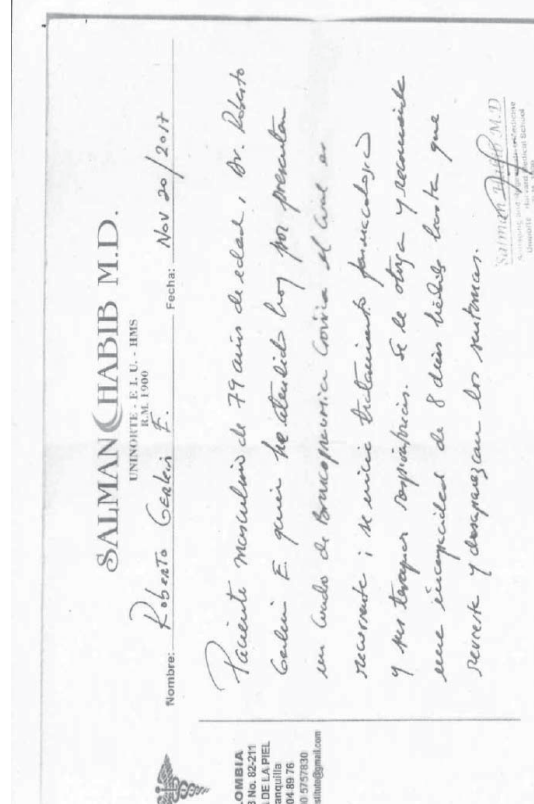 SALMAN CHABIB M.D.
UNINORTE - E.I.U. - HMS
R.M. 1900
Nombre: Roberto Gerlein E. Fecha: Nov 20/2017
Paciente masculino de 79 años de edad, Dr. Roberto
Gerlein E. quien fue atendido hoy por presentar
un cuadro de Bronconeumonia el cual es
recurrente; se inicia tratamiento farmacologico
y sus terapias respiratorias. Se le otorga y recomienda
una incapacidad de 8 dias hasta que
revierta y desaparezcan los sintomas.
Salman M.D
Harvard Medical School
OMBIA
No. 82-211
DE LA PIEL
anquilla
04 89 76
5757830
stitute@gmail.com